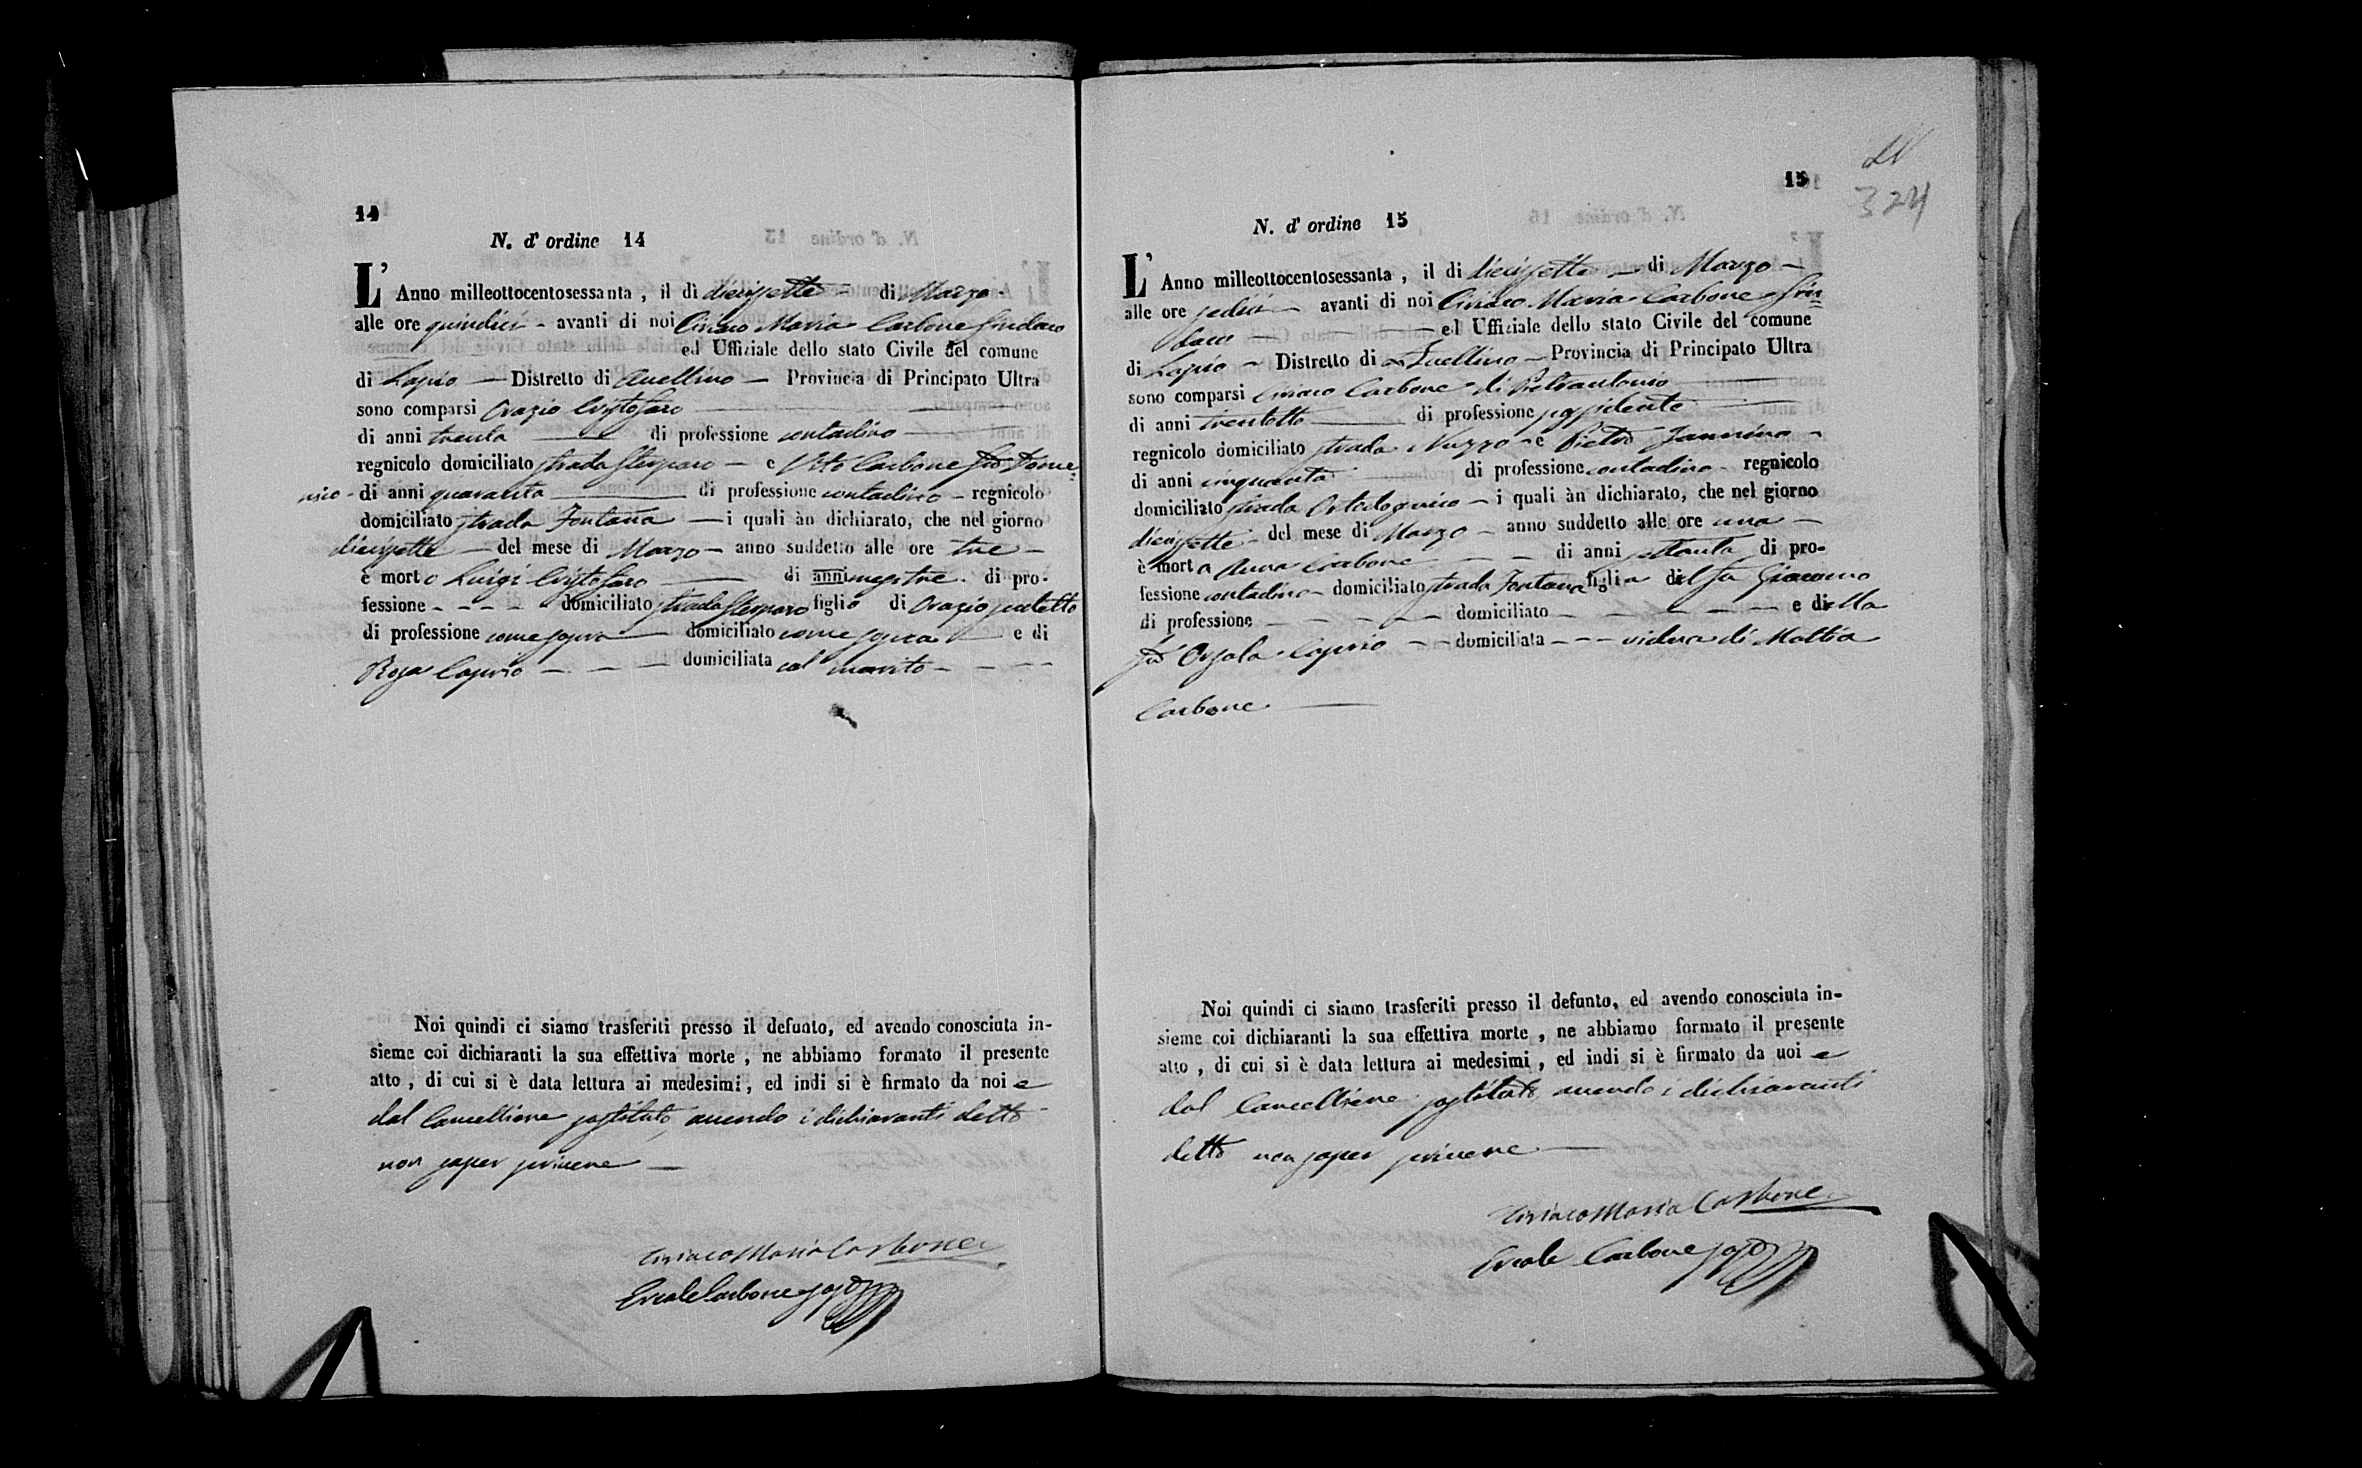 14
N. d' ordine 14
L' Anno milleottocentosessanta, il di diecissette di Marzo
alle ore quindici avanti di noi Ciriaco Maria Carbone Sindaco
ed Uffiziale dello stato Civile del comune
di Lapio Distretto di Avellino Provincia di Principato Ultra
sono comparsi Orazio Cristofaro
di anni trenta di professione contadino
regnicolo domiciliato strada e Vito Carbone fu Dome=
nico di anni quaranta di professione contadino regnicolo
domiciliato strada Fontana i quali àn dichiarato, che nel giorno
diecissette del mese di Marzo anno suddetto alle ore tre
è morto Luigi Cristofaro di anni mesi tre di pro-
fessione domiciliato strada figlio di Orazio sudetto
di professione come sopra domiciliato come sopra e di
Rosa Caprio domiciliata col marito
Noi quindi ci siamo trasferiti presso il defunto, ed avendo conosciuta in-
sieme coi dichiaranti la sua effettiva morte, ne abbiamo formato il presente
atto, di cui si è data lettura ai medesimi, ed indi si è firmato da noi e
dal Cancelliere sostituto, avendo i dichiaranti detto
non saper scrivere
Ciriaco Maria Carbone
Ercole Carbone sost
15
324
N. d' ordine 15
L' Anno milleottocentosessanta, il di diecissette di Marzo
alle ore sedici avanti di noi Ciriaco Maria Carbone Sin=
daco ed Uffiziale dello stato Civile del comune
di Lapio Distretto di Avellino Provincia di Principato Ultra
sono comparsi Ciriaco Carbone di Pietrantonio
di anni trentotto di professione possidente
regnicolo domiciliato strada Nuzzo e Pietro Jannino
di anni cinquanta di professione contadino regnicolo
domiciliato strada i quali àn dichiarato, che nel giorno
diecissette del mese di Marzo anno suddetto alle ore una
è morta Anna Carbone di anni settanta di pro-
fessione contadina domiciliato strada Fontana figlia del fu Giacomo
di professione domiciliato e della
fu Orsola Caprio domiciliata vidua di Mattia
Carbone
Noi quindi ci siamo trasferiti presso il defunto, ed avendo conosciuta in-
sieme coi dichiaranti la sua effettiva morte, ne abbiamo formato il presente
atto, di cui si è data lettura ai medesimi, ed indi si è firmato da noi e
dal Cancelliere sostituto avendo i dichiaranti
detto non saper scrivere
Ciriaco Maria Carbone
Ercole Carbone sost